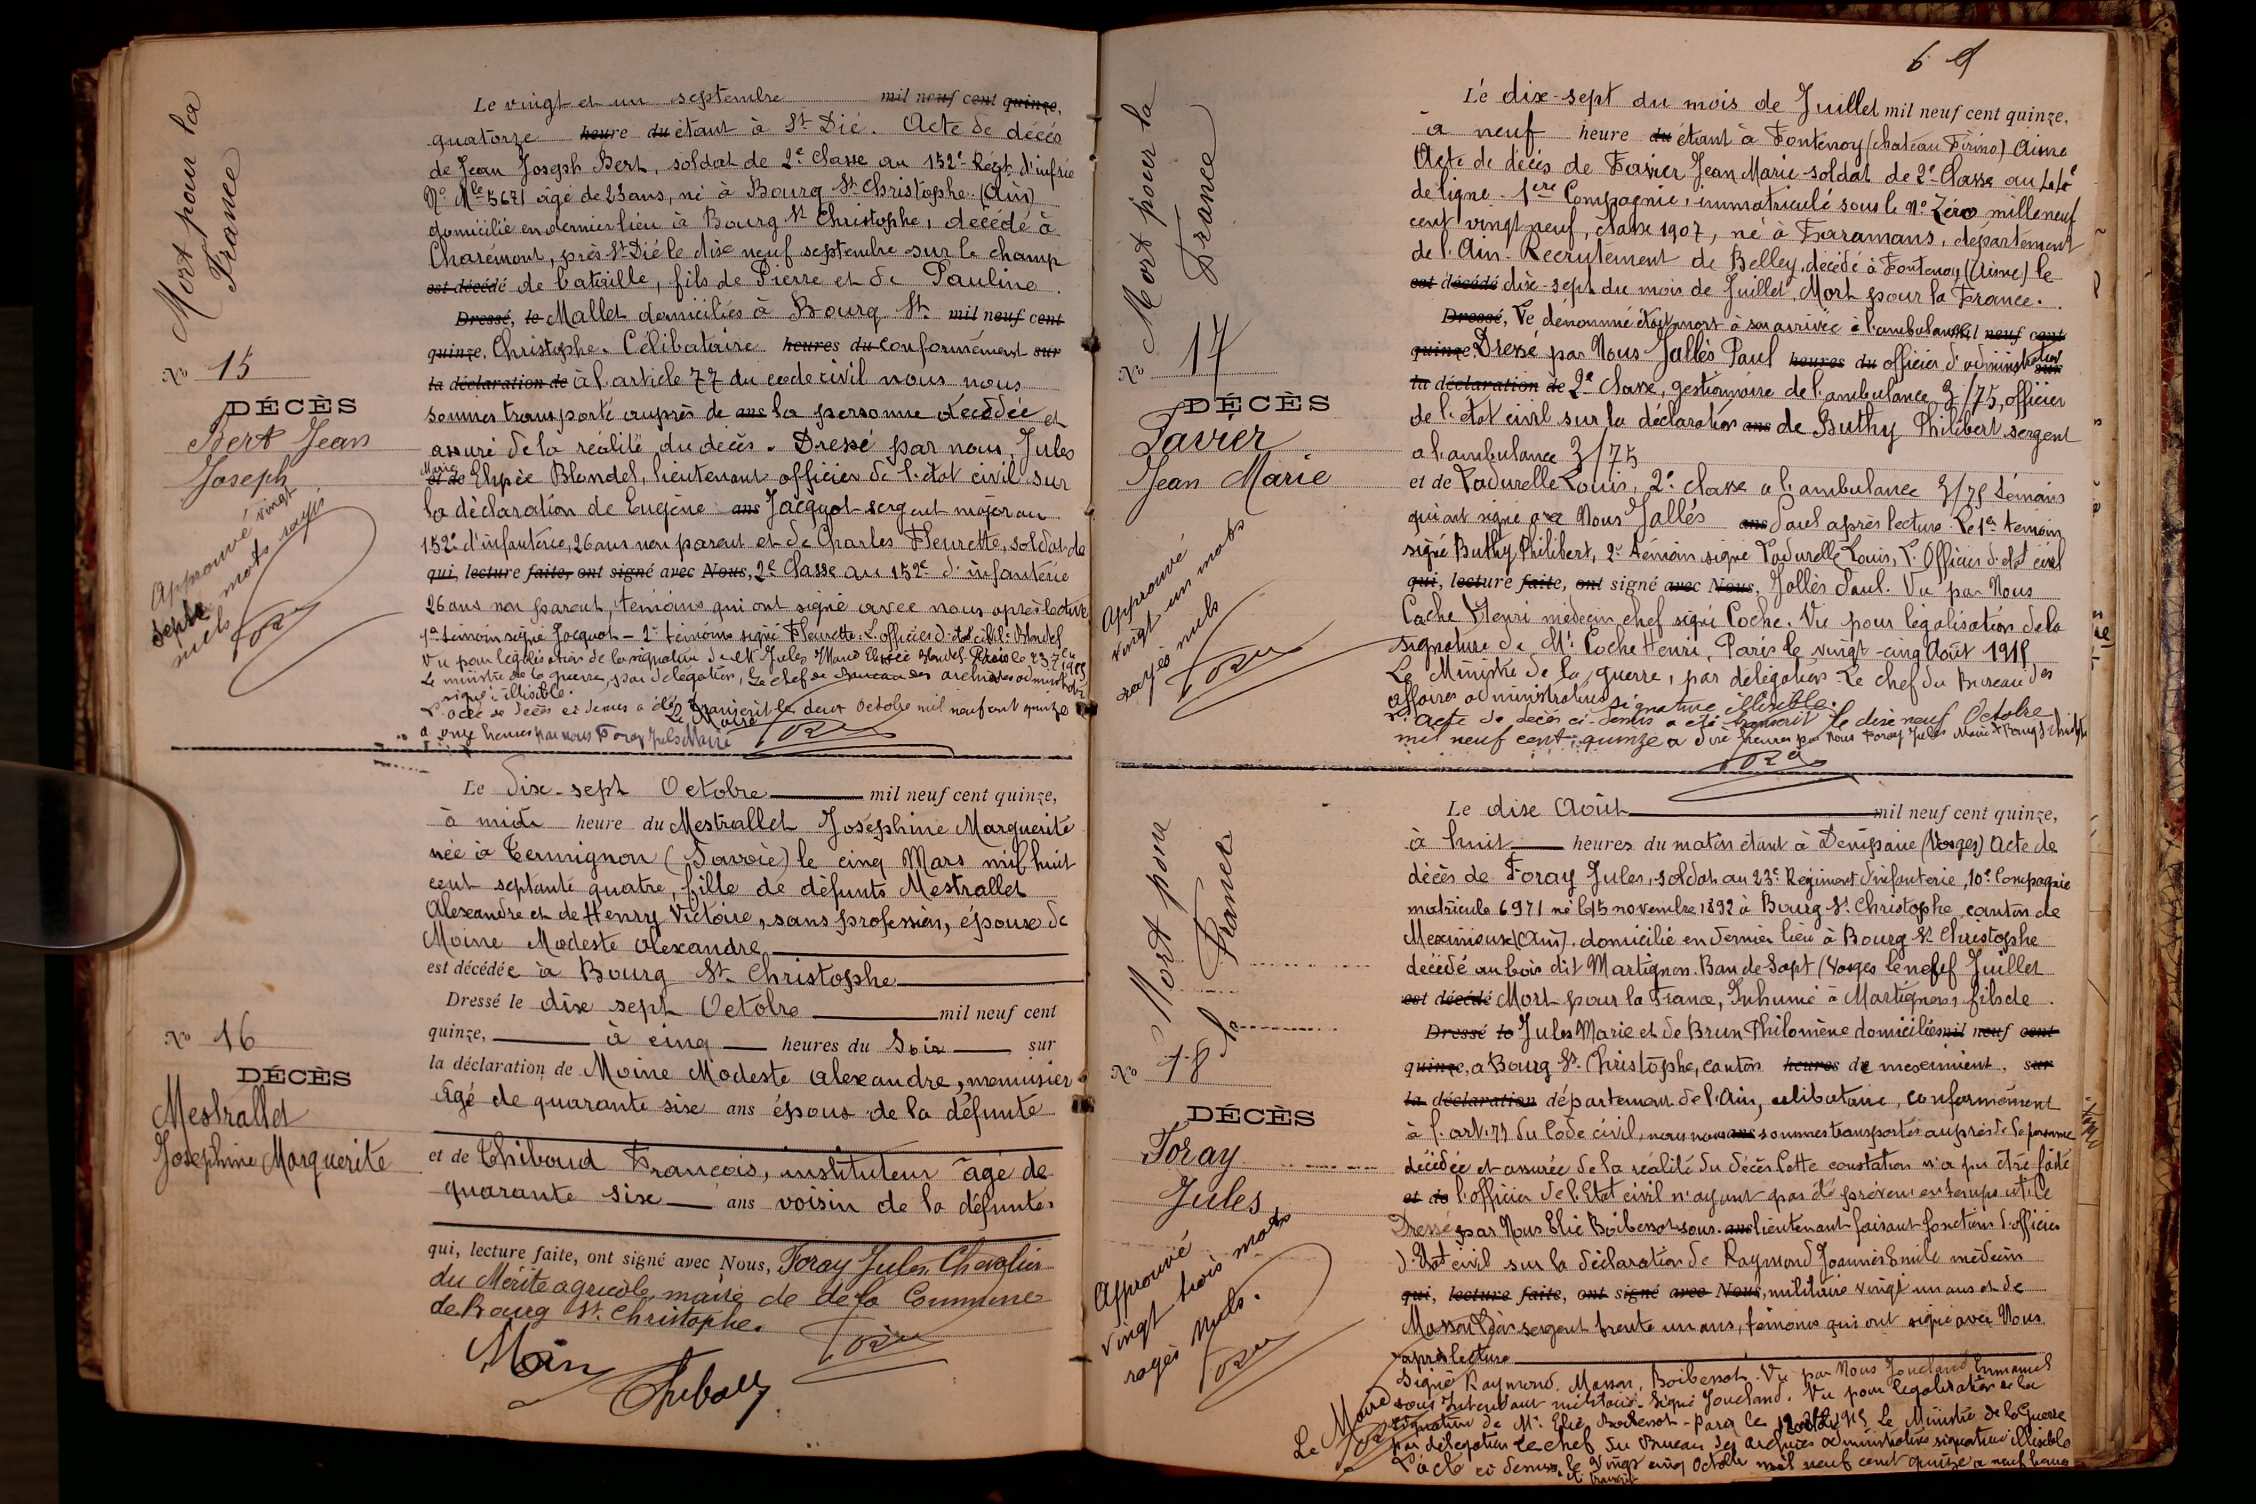 Mort pour la
France
No 15
DÉCÈS
Bert Jean
Joseph
Approuvé vingt
sept mots rayés
nuls
Le vingt et un septembre mil neuf cent quinze,
quatorze heure du étant à St Dié. Acte de décès
de Jean Joseph Bert, soldat de 2e Classe au 152e Régt d'infrie
No Mle 5671 âgé de 23 ans, né à Bourg St Christophe (Ain)
domicilié en dernier lieu à Bourg St Christophe, décédé à
Charémont, près St Dié le dix neuf septembre sur le champ
est décédé de bataille, fils de Pierre et de Pauline
Dressé, le Mallet domiciliés à Bourg St mil neuf cent
quinze, Christophe. Célibataire heures du conformément sur
la déclaration de à l'article 77 du code civil nous nous
sommes transporté auprès de ans la personne décédée et
assuré de la réalité du décès. Dressé par nous, Jules
Marie et de Elysée Blondel, lieutenant officier de l'état civil sur
la déclaration de Eugène ans Jacquot sergent major au
152e d'infanterie, 26 ans non parent et de Charles Fleurette, soldat de
qui, lecture faite, ont signé avec Nous, 2e Classe au 152e d'infanterie
26 ans non parent, témoins qui ont signé avec nous après lecture
1er témoin signé Jacquot - 2e témoin signé Fleurette. L'officier d'état civil: Blondel
Vu pour légalisation de la signature de Mr Jules Marie Elysée Blondel Paris le 23 7bre 1915
Le ministre de la guerre, par délégation, Le chef de Bureau des archives administratives
signé: illisible.
L'acte de décès ci dessus a été transcrit le deux Octobre mil neuf cent quinze
à onze heures par nous Foray Jules Maire
Le Maire
No 16
DÉCÈS
Mestrallet
Joséphine Marguerite
Le dix-sept Octobre mil neuf cent quinze,
à midi heure du Mestrallet Joséphine Marguerite
née à Termignon (Savoie) le cinq Mars mil huit
cent septante quatre, fille de défunts Mestrallet
Alexandre et de Henry Victoire, sans profession, épouse de
Moine Modeste Alexandre
est décédée à Bourg St Christophe
Dressé le dix sept Octobre mil neuf cent
quinze, à cinq heures du soir sur
la déclaration de Moine Modeste Alexandre, menuisier
âgé de quarante six ans époux de la défunte
et de Thiboud François, instituteur âgé de
quarante six ans voisin de la défunte,
qui, lecture faite, ont signé avec Nous, Foray Jules Chevalier
du Mérite agricole, maire de de la Commune
de Bourg St Christophe.
6
Mort pour la
France
No 17
DÉCÈS
Favier
Jean Marie
Approuvé
vingt un mots
rayés nuls
Le dix-sept du mois de Juillet mil neuf cent quinze,
à neuf heure du étant à Fontenoy (château Firino) Aisne
Acte de décès de Favier Jean Marie soldat de 2e Classe au
de ligne. 1ère Compagnie, immatriculé sous le No Zéro mille neuf
cent vingt neuf, classe 1907, né à Faramans, département
de l'Ain. Recrutement de Belley, décédé à Fontenoy (Aisne) le
est décédé dix-sept du mois de Juillet, Mort pour la France.
Dressé, Le dénommé était mort à son arrivée à l'ambulance mil neuf cent
quinze Dressé par Nous Jallès Paul heures du officier d'administration sur
la déclaration de 2e classe, gestionnaire de l'ambulance 3/75, officier
de l'état civil sur la déclaration ans de Buthy Philibert, sergent
à l'ambulance 3/75
et de Ladurelle Louis, 2e classe à l'ambulance 3/75 témoins
qui ont signé avec Nous Jallès ans Paul après lecture. Le 1er témoin
signé Buthy Philibert, 2e témoin signé Ladurelle Louis, L'Officier d'état civil
qui, lecture faite, ont signé avec Nous, Jallès Paul. Vu par Nous
Coche Henri médecin chef signé Coche. Vu pour légalisation de la
signature de Mr Coche Henri, Paris le vingt-cinq Août 1915
Le Ministre de la guerre, par délégation. Le chef du Bureau des
affaires administratives signature illisible.
L'acte de décès ci-dessus a été transcrit le dix neuf Octobre
mil neuf cent quinze à dix heures par Nous Foray Jules Maire de Bourg St Christophe
Mort pour
la France
No 18
DÉCÈS
Foray
Jules
Approuvé
vingt trois mots
rayés nuls.
Le dix Août mil neuf cent quinze,
à huit heures du matin étant à Denipaire (Vosges) Acte de
décès de Foray Jules, soldat au 23e Régiment d'infanterie, 10e Compagnie
matricule 6971 né le 15 novembre 1892 à Bourg St Christophe canton de
Meximieux (Ain). domicilié en dernier lieu à Bourg St Christophe
décédé au bois dit Martignon. Ban de Sapt (Vosges le neuf Juillet
est décédé Mort pour la France, Inhumé à Martignon, fils de
Dressé le Jules Marie et de Brun Philomène domiciliés mil neuf cent
quinze, à Bourg St Christophe, canton heures de meximieux, sur
la déclaration département de l'Ain, célibataire, conformément
à l'art. 77 du Code civil, nous nous ans sommes transportés auprès de la personne
décédée et assurée de la réalité du décès. Cette constation n'a pu être faite
et de l'officier de l'Etat civil n'ayant pas été prévenu en temps utile
Dressé par Nous Elie Boibessot sous-ans lieutenant faisant fonctions d'officier
d'Etat civil sur la déclaration de Raymond Joannès Emile médecin
qui, lecture faite, ont signé avec Nous, militaire vingt un ans et de
Masson sergent trente un ans, témoins qui ont signé avec Nous
après lecture
Signé Raymond, Masson, Boibessot. Vu par Nous Joucland Emmanuel
sous Intendant militaire. Signé Joucland. Vu pour légalisation de la
signature de Mr Elie Boibessot - Paris le Octobre 1915 Le Ministre de la Guerre
par délégation Le chef du Bureau des archives administratives signature illisible
L'acte ci dessus a été transcrit le vingt cinq Octobre mil neuf cent quinze à neuf heures
Le Maire